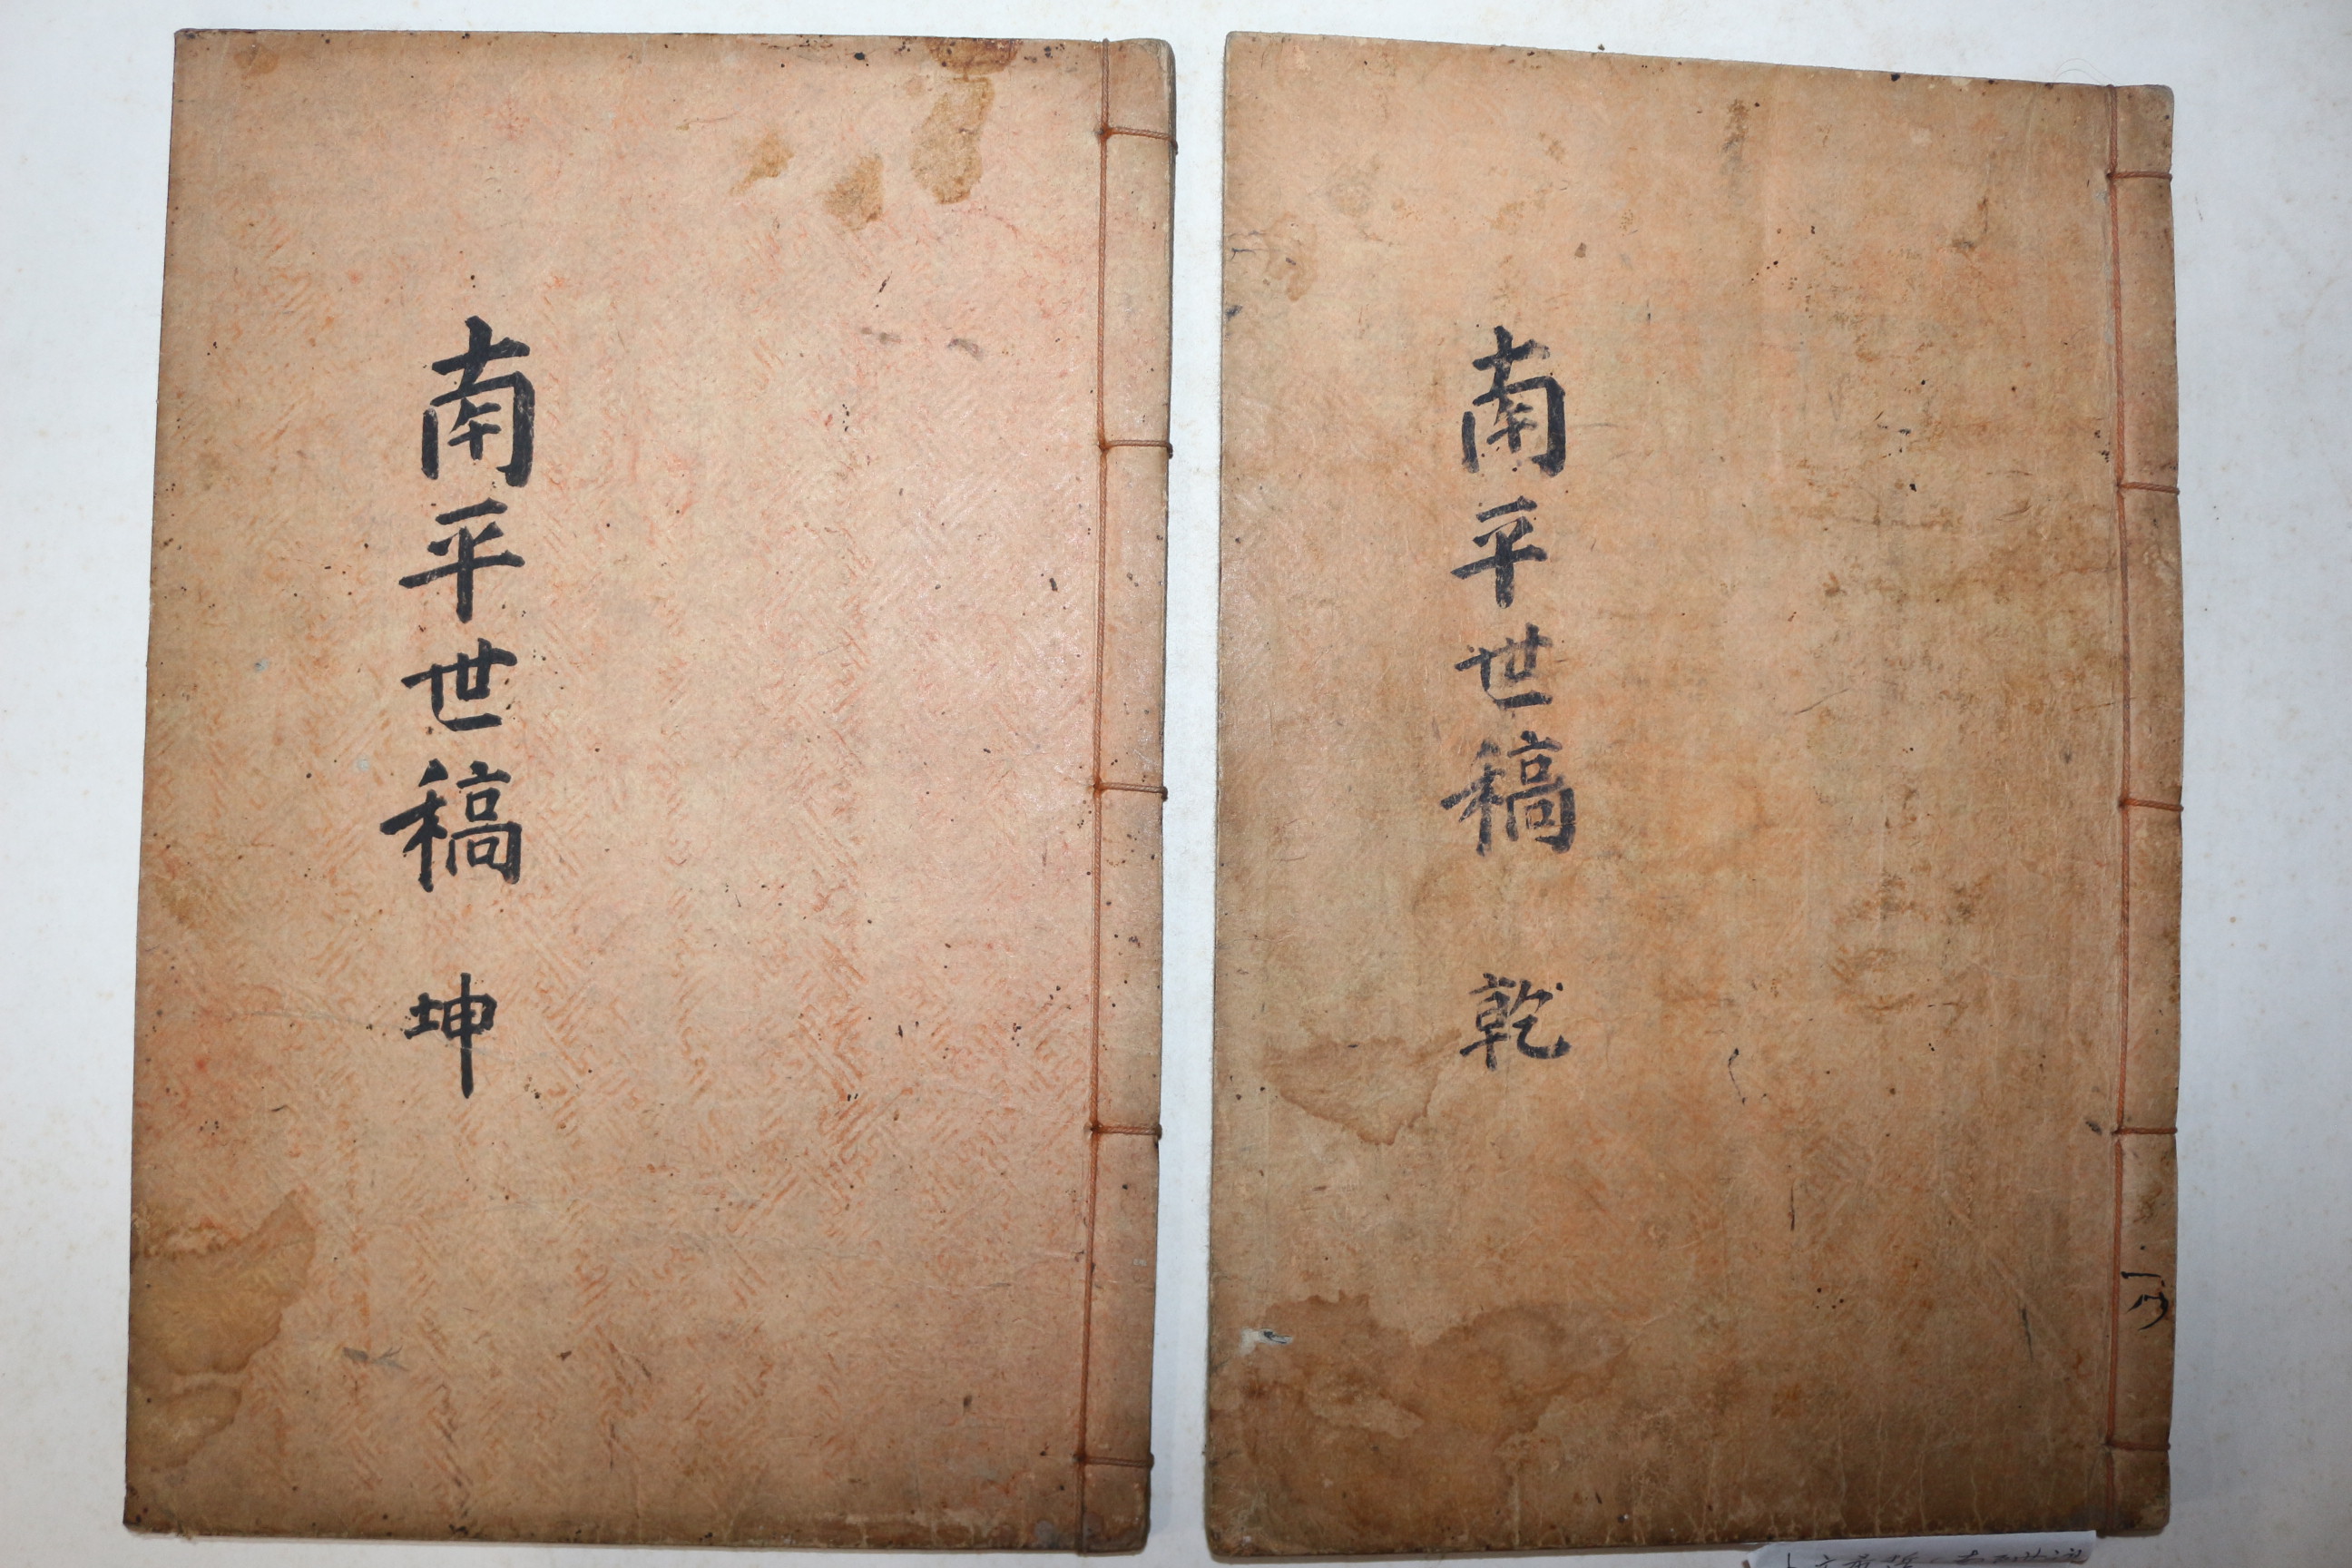 南平世稿 乾
南平世稿 坤